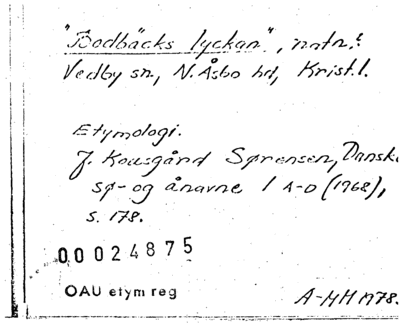 "Bodbäcks lyckan", natn.:
Vedby sn, N. Åsbo hd, Krist. l.
Etymologi.
J. Kousgård Sørensen, Danske
sø- og ånavne 1 A-D (1968),
s. 178.
00024875
OAU etym reg
A-HH 1978.